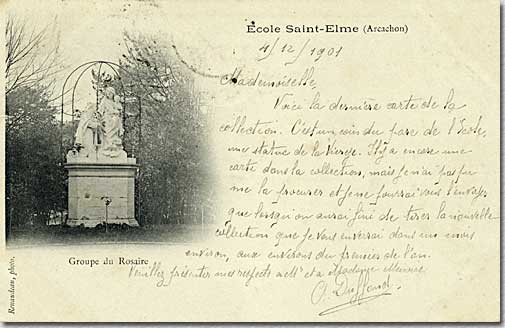 École Saint-Elme (Arcachon)
4/12/1901
Mademoiselle,
Voici la dernière carte de la
collection. C'est un coin du parc de l'Ecole,
une statue de la Vierge. Il y a encore une
carte dans la collection, mais je n'ai pas pu
me la procurer et je ne pourrai vous l'envoyer
que lorsqu'on aura fini de tirer la nouvelle
collection que je vous enverrai dans un mois
environ, aux environs du premier de l'an.
Veuillez présenter mes respects à Mr et à Madame
Groupe du Rosaire
photo.